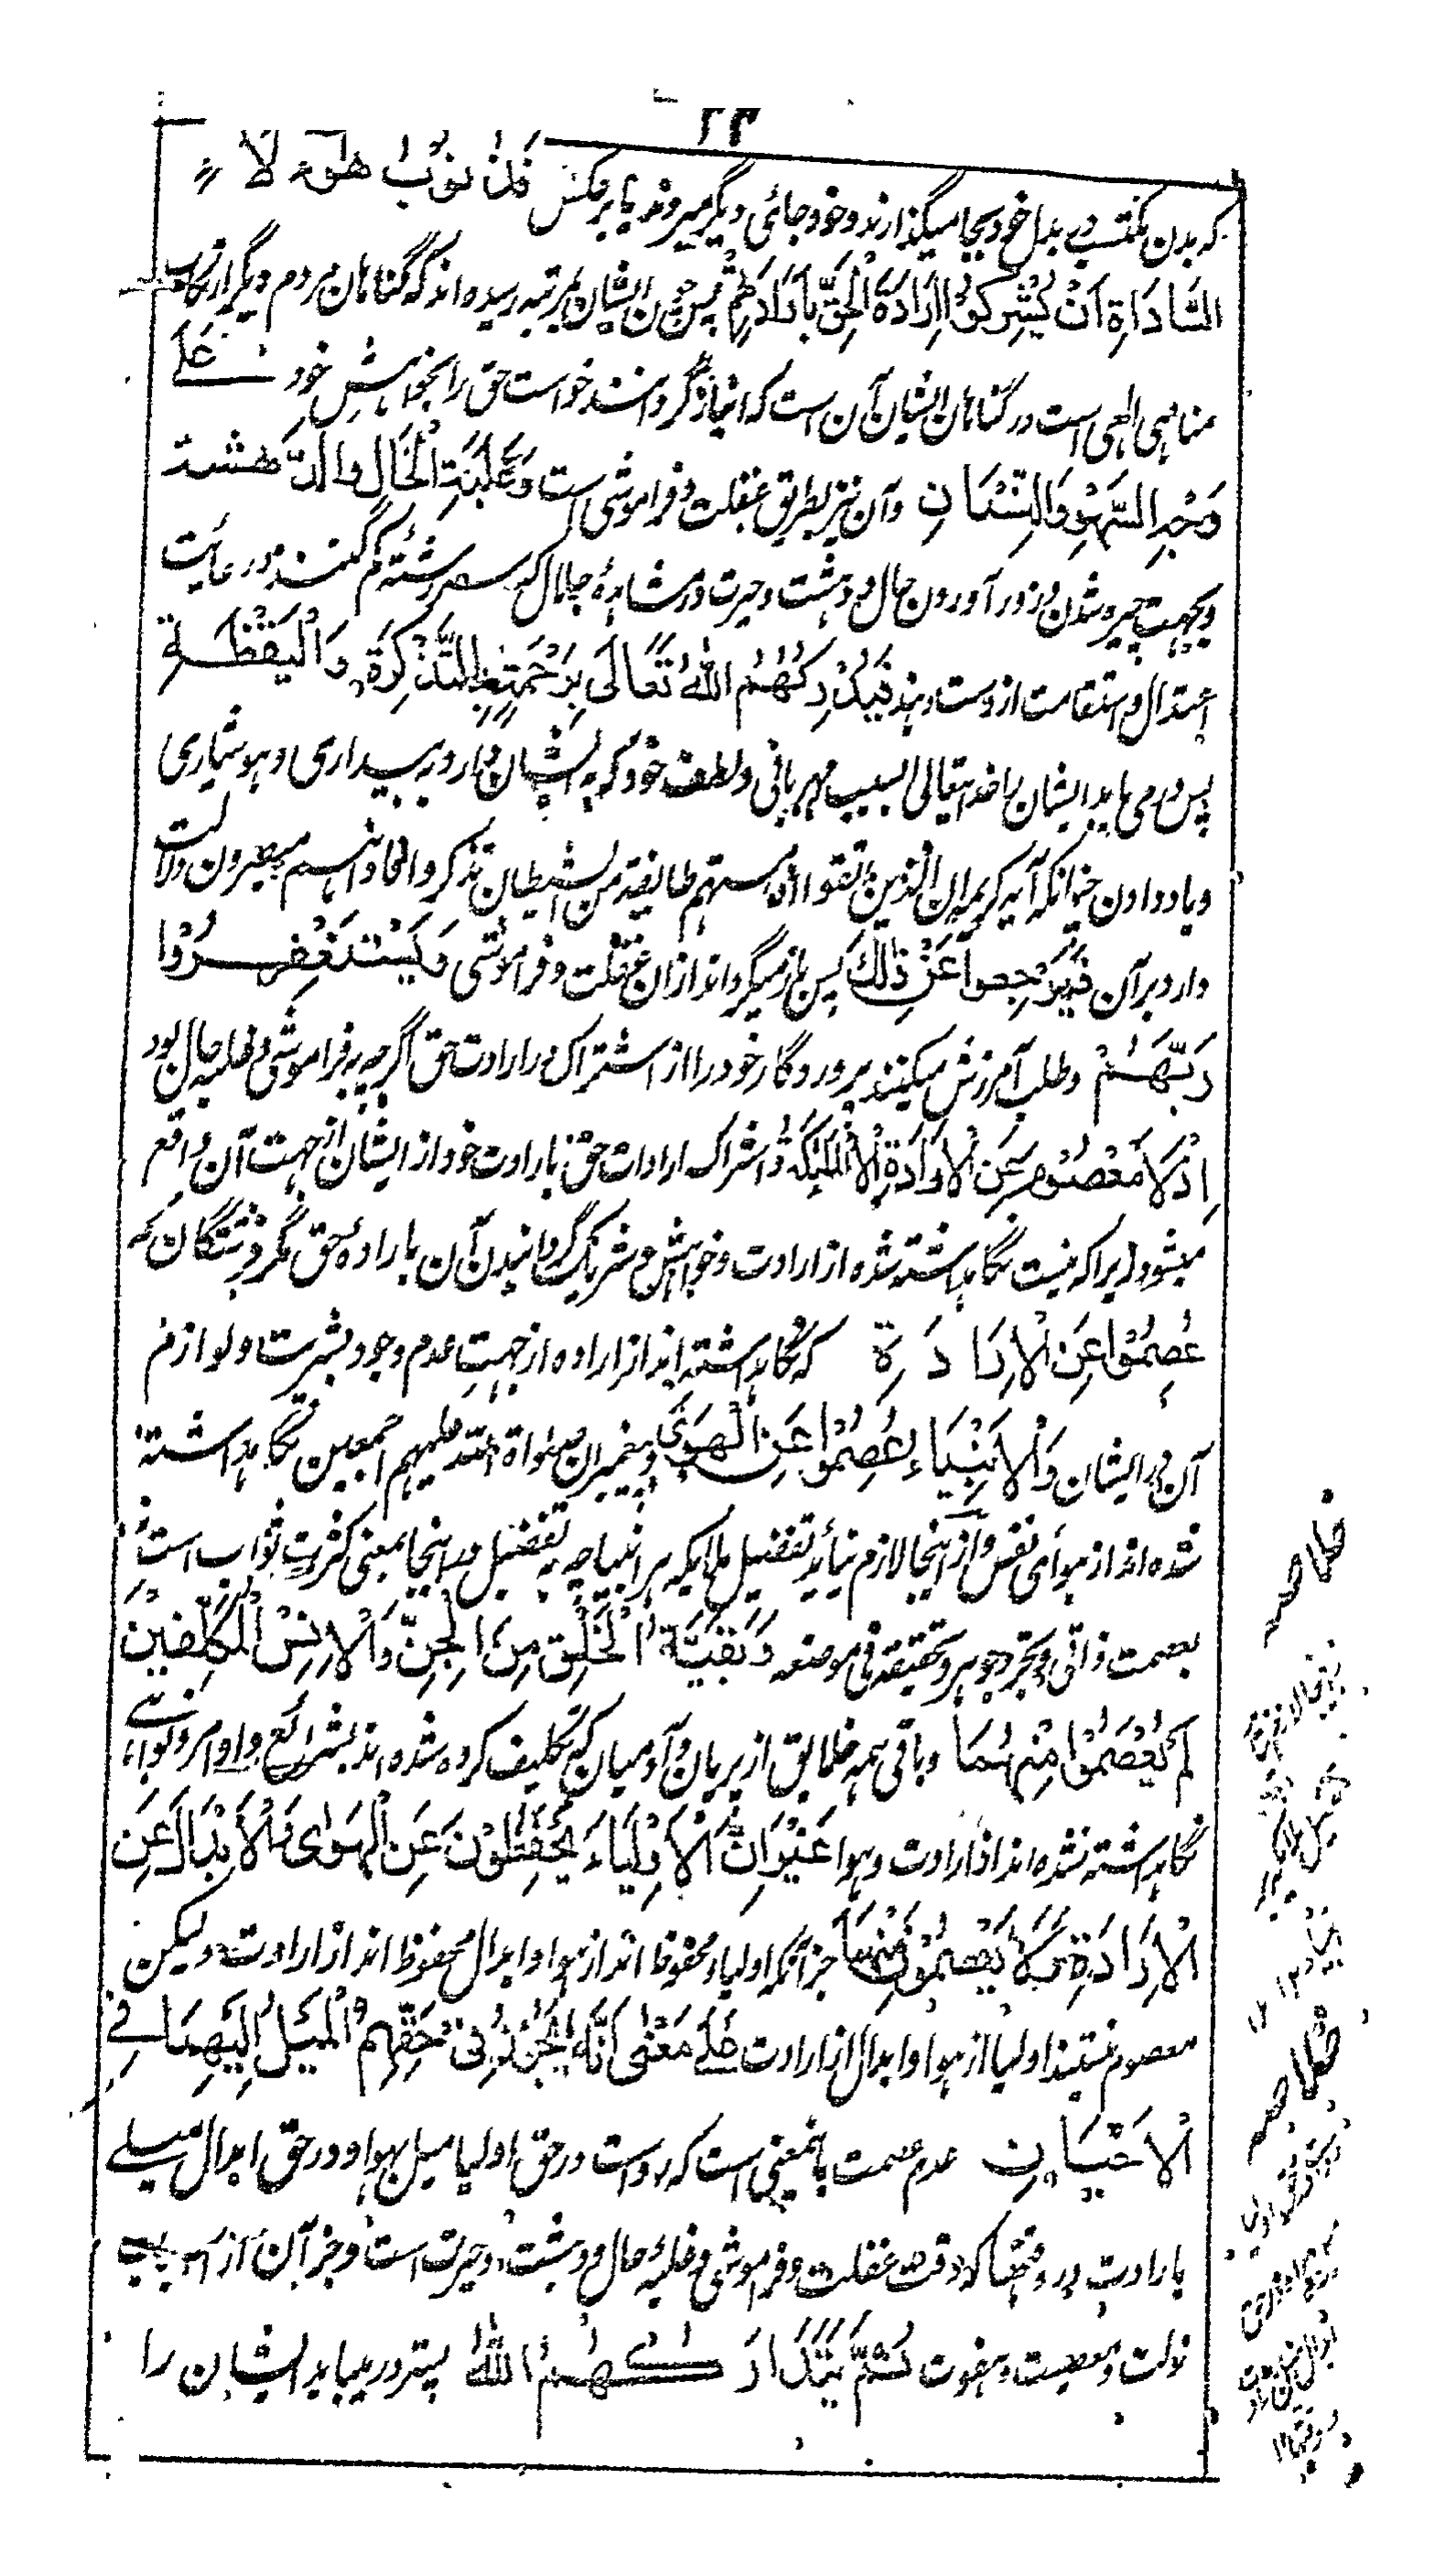 ۲۳
که بدن مکتسبے بدل خود بجا میگذارند و خود جائی دیگر میروند یا برعکس فَذُنُوبُ هٰؤُلَاءِ
السَّادَاةِ اَنْ یُّشْرِکُوْا اِرَادَةَ الْحَقِّ بِاِرَادَتِهِمْ پس چون ایشان بمرتبه رسیده اند که گناهان مردم دیگر ارتکاب
مناهی الهی است در گناهان ایشان آن است که انباز گردانند خواست حق را بخواهشِ خود عَلٰے
وَجْهِ السَّهْوِ وَالنِّسْیَانِ و آن نیز بطریق غفلت و فراموشی است وَغَلَبَةِ الْحَالِ وَالدَّهْشَةِ
و بجهت چیره شدن و زور آوردن حال و دهشت و حیرت در مشاهدۀ جمال که سررشته گم کنند و رعایت
اعتدال و استقامت از دست دهند فَیُدْرِکُهُمُ اللّٰهُ تَعَالٰی بِرَحْمَتِهٖ بِالتَّذْکِرَةِ وَالْیَقْظَةِ
پس در می یابد ایشان را خدایتعالی بسبب مهربانی و لطف خود که به ایشان دارد به بیداری و هوشیاری
و یاد دادن چنانکه آیه کریمه ان الذین اتقوا اذا مستهم طایفة من الشیطان تذکروا فاذا هم مبصرون دلالت
دارد بر آن فَیَرْجِعُوا عَنْ ذٰلِکَ پس باز میگردند از ان غفلت و فراموشی وَیَسْتَغْفِرُوْا
رَبَّهُمْ و طلب آمرزش میکنند پروردگار خود را از اشتراک در ارادت حق اگرچه به فراموشی و غلبه حال بود
اِذْ لَا مَعْصُوْمَ عَنِ الْاِرَادَةِ اِلَّا الْمَلٰئِکَةُ و اشراک ارادات حق بارادت خود از ایشان ازجهت آن واقع
میشود زیرا که نیست نگاهداشته شده از ارادت و خواهش و شریک گردانیدن آن باراده حق مگر فرشتگان که
عُصِمُوْا عَنِ الْاِرَادَةِ که نگاهداشته اند از اراده از جهتِ عدم وجود بشریت و لوازم
آن در ایشان وَالْاَنْبِیَاءِ عُصِمُوْا عَنِ الْهَوٰی و پیغمبران صلواة الله علیهم اجمعین نگاهداشته
شده اند از هوای نفس و از اینجا لازم نیاید تفضیل ملایکه بر انبیا چه تفضیل در اینجا بمعنی کثرت ثواب است نه
بعصمت ذاتی و تجرد جوهر و تحقیقه فی موضعه وَبَقِیَّةُ الْخَلْقِ مِنَ الْجِنِّ وَالْاِنْسِ الْمُکَلَّفِیْنَ
لَمْ یُعْصَمُوْا مِنْهُمَا و باقی همه خلایق از پریان و آدمیان که تکلیف کرده شده اند بشرائع و اوامر و نواهے
نگاهداشته نشده اند از ارادت و هوا غَیْرَ اَنَّ الْاَوْلِیَاءَ یُحْفَظُوْنَ عَنِ الْهَوٰی وَالْاَبْدَالَ عَنِ
الْاِرَادَةِ وَلَا یُعْصَمُوْنَ مِنْهُمَا جز آنکه اولیاء محفوظ اند از هوا و ابدال محفوظ اند از ارادت و لیکن
معصوم نیستند اولیا از هوا و ابدال از ارادت عَلٰے مَعْنٰی اَنَّهٗ یَجُوْزُ فِیْ حَقِّهِمُ الْمَیْلُ اِلَیْهِمَا فِے
الْاَحْیَانِ عدم عصمت باینمعنی است که رواست در حق اولیا میل بهوا و در حق ابدال میلے
بارادت در وقتها که وقت غفلت و فراموشی و غلبۀ حال و دهشت و حیرت است و جز آن از اسباب
زلت و معصیت و هفوت ثُمَّ یَتَدَارَکُهُمُ اللّٰهُ پستر در مییابد ایشان را
خلاصه
از اینجا لازم نیاید
تفضیل ملایکه بر
انبیا ۱۲
خلاصه